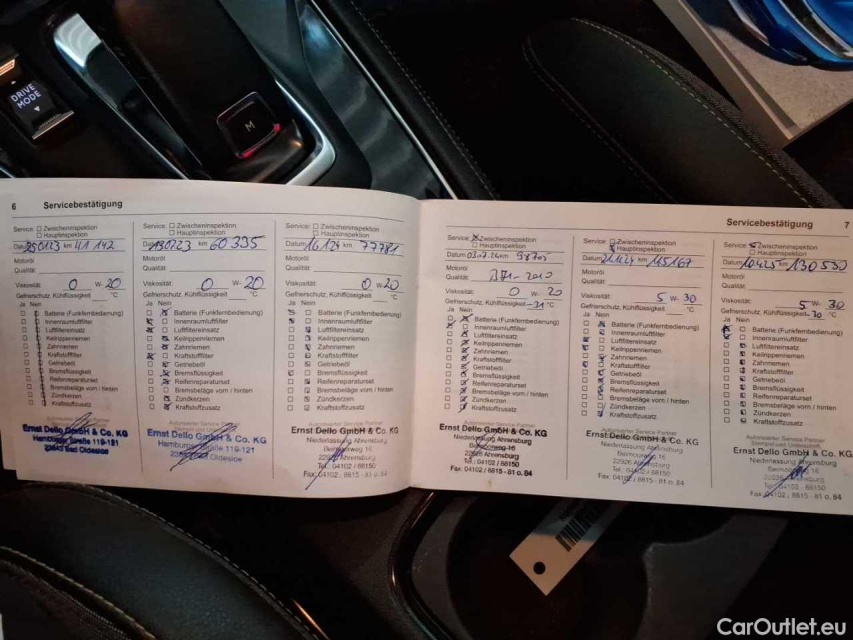 DRIVE
MODE
M
6 Servicebestätigung
Service: Zwischeninspektion
Hauptinspektion
Datum 250123 km 41 142
Motoröl
Qualität:
Viskosität: 0 W- 20
Gefrierschutz, Kühlflüssigkeit: °C
Ja Nein
Batterie (Funkfernbedienung)
Innenraumluftfilter
Luftfiltereinsatz
Keilrippenriemen
Zahnriemen
Kraftstofffilter
Getriebeöl
Bremsflüssigkeit
Reifenreparaturset
Bremsbeläge vorn / hinten
Zündkerzen
Kraftstoffzusatz
Ernst Dello GmbH & Co. KG
Hamburger Straße 119-121
23843 Bad Oldesloe
Service: Zwischeninspektion
Hauptinspektion
Datum 130723 km 60 335
Motoröl
Qualität:
Viskosität: 0 W- 20
Gefrierschutz, Kühlflüssigkeit: °C
Ja Nein
Batterie (Funkfernbedienung)
Innenraumluftfilter
Luftfiltereinsatz
Keilrippenriemen
Zahnriemen
Kraftstofffilter
Getriebeöl
Bremsflüssigkeit
Reifenreparaturset
Bremsbeläge vorn / hinten
Zündkerzen
Kraftstoffzusatz
Ernst Dello GmbH & Co. KG
Hamburger Straße 119-121
Oldesloe
Service: Zwischeninspektion
Hauptinspektion
Datum 16124 km 77781
Motoröl
Qualität:
Viskosität: 0 W- 20
Gefrierschutz, Kühlflüssigkeit: °C
Ja Nein
Batterie (Funkfernbedienung)
Innenraumluftfilter
Luftfiltereinsatz
Keilrippenriemen
Zahnriemen
Kraftstofffilter
Getriebeöl
Bremsflüssigkeit
Reifenreparaturset
Bremsbeläge vorn / hinten
Zündkerzen
Kraftstoffzusatz
Ernst Dello GmbH & Co. KG
Niederlassung Ahrensburg
Beimoorweg 16
22926 Ahrensburg
Tel.: 04102 / 88150
Fax: 04102 / 8815 - 81 o. 84
Servicebestätigung 7
Service: Zwischeninspektion
Hauptinspektion
Datum 03.07.24 km 98705
Motoröl
Qualität: B71-2010
Viskosität: 0 W- 20
Gefrierschutz, Kühlflüssigkeit: -31 °C
Ja Nein
Batterie (Funkfernbedienung)
Innenraumluftfilter
Luftfiltereinsatz
Keilrippenriemen
Zahnriemen
Kraftstofffilter
Getriebeöl
Bremsflüssigkeit
Reifenreparaturset
Bremsbeläge vorn / hinten
Zündkerzen
Kraftstoffzusatz
Ernst Dello GmbH & Co. KG
Niederlassung Ahrensburg
Beimoorweg 16
22926 Ahrensburg
Tel.: 04102 / 88150
Fax: 04102 / 8815 - 81 o. 84
Service: Zwischeninspektion
Hauptinspektion
Datum km 115167
Motoröl
Qualität:
Viskosität: 5 W- 30
Gefrierschutz, Kühlflüssigkeit: °C
Ja Nein
Batterie (Funkfernbedienung)
Innenraumluftfilter
Luftfiltereinsatz
Keilrippenriemen
Zahnriemen
Kraftstofffilter
Getriebeöl
Bremsflüssigkeit
Reifenreparaturset
Bremsbeläge vorn / hinten
Zündkerzen
Kraftstoffzusatz
Ernst Dello GmbH & Co. KG
Niederlassung Ahrensburg
Beimoorweg 16
22926 Ahrensburg
Tel.: 04102 / 88150
Fax: 04102 / 8815 - 81 o. 84
Service: Zwischeninspektion
Hauptinspektion
Datum 10425 km 130530
Motoröl
Qualität:
Viskosität: 5 W- 30
Gefrierschutz, Kühlflüssigkeit: -30 °C
Ja Nein
Batterie (Funkfernbedienung)
Innenraumluftfilter
Luftfiltereinsatz
Keilrippenriemen
Zahnriemen
Kraftstofffilter
Getriebeöl
Bremsflüssigkeit
Reifenreparaturset
Bremsbeläge vorn / hinten
Zündkerzen
Kraftstoffzusatz
Ernst Dello GmbH & Co. KG
Niederlassung Ahrensburg
Beimoorweg 16
22926 Ahrensburg
Tel.: 04102 - 88150
Fax: 04102 / 8815 - 81 o. 84
CarOutlet.eu